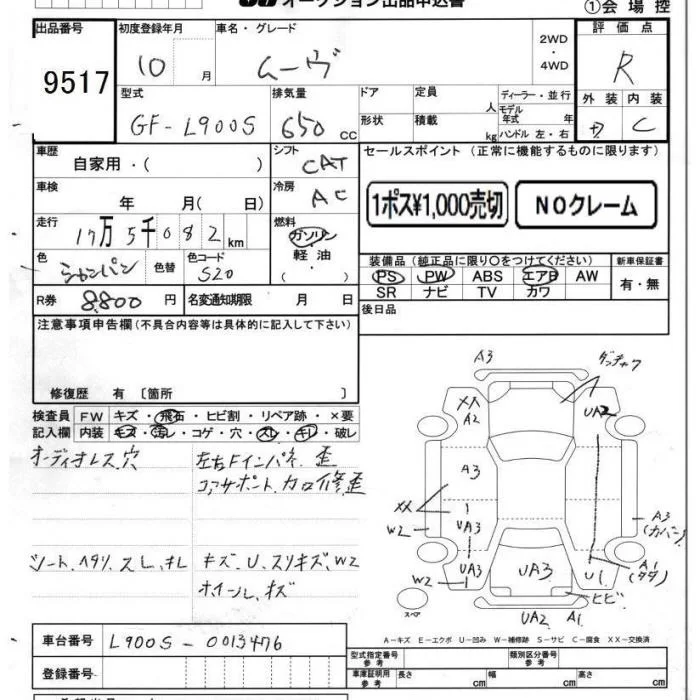 オークション出品申込書
①会場控
出品番号 9517
初度登録年月 10 月
車名・グレード ムーヴ
2WD・4WD
評価点 R
外装 内装 C
型式 GF-L900S
排気量 650 cc
ドア 定員 人
形状 積載 kg
ディーラー・並行
モデル年式 年
ハンドル 左・右
車歴 自家用・( )
シフト CAT
車検 年 月( 日)
冷房 AC
走行 17万5千082km
燃料 ガソリン・軽油・( )
色 シャンパン 色替 色コード S20
R券 8,800 円 名変通知期限 月 日
セールスポイント(正常に機能するものに限ります)
1ポス¥1,000売切 NOクレーム
装備品(純正品に限り○をつけてください) 新車保証書
PS PW ABS エアB AW 有・無
SR ナビ TV カワ
後日品
注意事項申告欄(不具合内容等は具体的に記入して下さい)
修復歴 有〔箇所 〕
検査員 FW キズ・飛石・ヒビ割・リペア跡・×要
記入欄 内装 キズ・汚れ・コゲ・穴・スレ・キレ・破し
オーディオレス、穴 左右Fインパネ 歪
コアサポート、カロ修、歪
シート、ヘタリ、スレ、キレ キズ、U、スリキズ、W2
ホイール、キズ
A3 ダッチャク
XX A2 UA2
A3
XX W2 UA3 A3 (カバー)
W2 UA3 UA3 U1 A1 (タタ)
ヒビ
スペア UA2 A1
A-キズ E-エクボ U-凹み W-補修跡 S-サビ C-腐食 XX-交換済
車台番号 L900S-0013476
登録番号
型式指定番号 参考 類別区分番号 参考
車庫証明用 参考 長さ cm 幅 cm 高さ cm